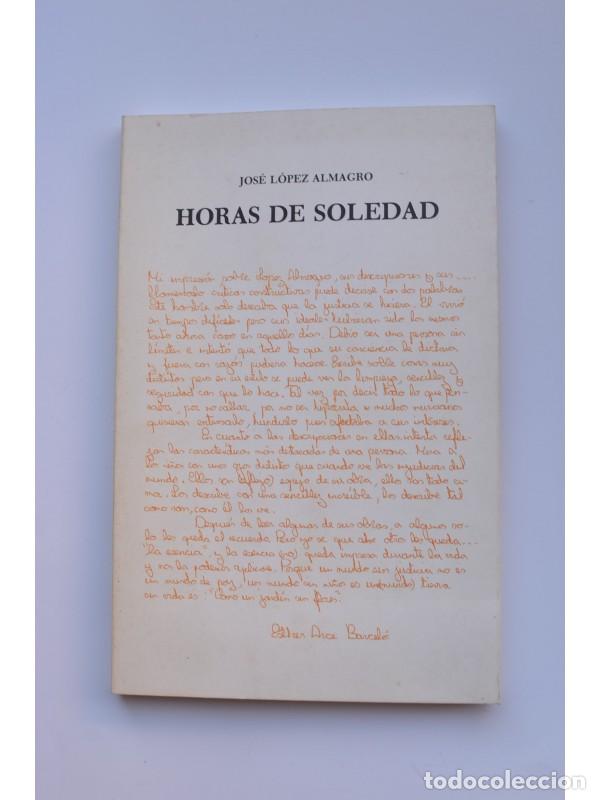 JOSÉ LÓPEZ ALMAGRO
HORAS DE SOLEDAD
Mi impresión sobre López Almagro, sus descripciones y sus ....
llamentado críticas constructivas puede decirse con dos palabras
Este hombre solo deseaba que la justicia se hiciera. El vivió
en tiempo difíciles pero sus ideales hubieran sido los mismos
tanto ahora como en aquellos días. Debió ser una persona sin
límites e intentó que todo lo que su conciencia le dictara
y fuera con razón pudiera hacerse. Escribe sobre cosas muy
distintas pero en su estilo se puede ver la limpieza, sencillez y
seguridad con que lo hace. Tal vez por decir todo lo que pen-
saba, por no callar, por no ser hipócrita
quisieran enterrarlo, hundirlo pues afectaba a sus intereses.
En cuanto a las descripciones en ellas intenta refle-
jar las características más destacadas de una persona. Mira a
los niños con unos ojos distinto que cuando ve las injusticias del
mundo. Ellos son reflejo, espejo de su obra, ellos son todo
Los describe con una sencillez increíble, los describe tal
como son, como él los ve.
Después de leer algunas de sus obras, a algunos so-
lo les queda el recuerdo. Pero yo se que otro les queda....
"la esencia", y la esencia (no) queda impresa durante la vida
y no la podemos aplicar. Porque un mundo sin justicia no es
un mundo de paz, un mundo sin niños es un(mundo) tierra
sin vida es: "Como un jardín sin flores".
Esther Arce Barceló
todocoleccion